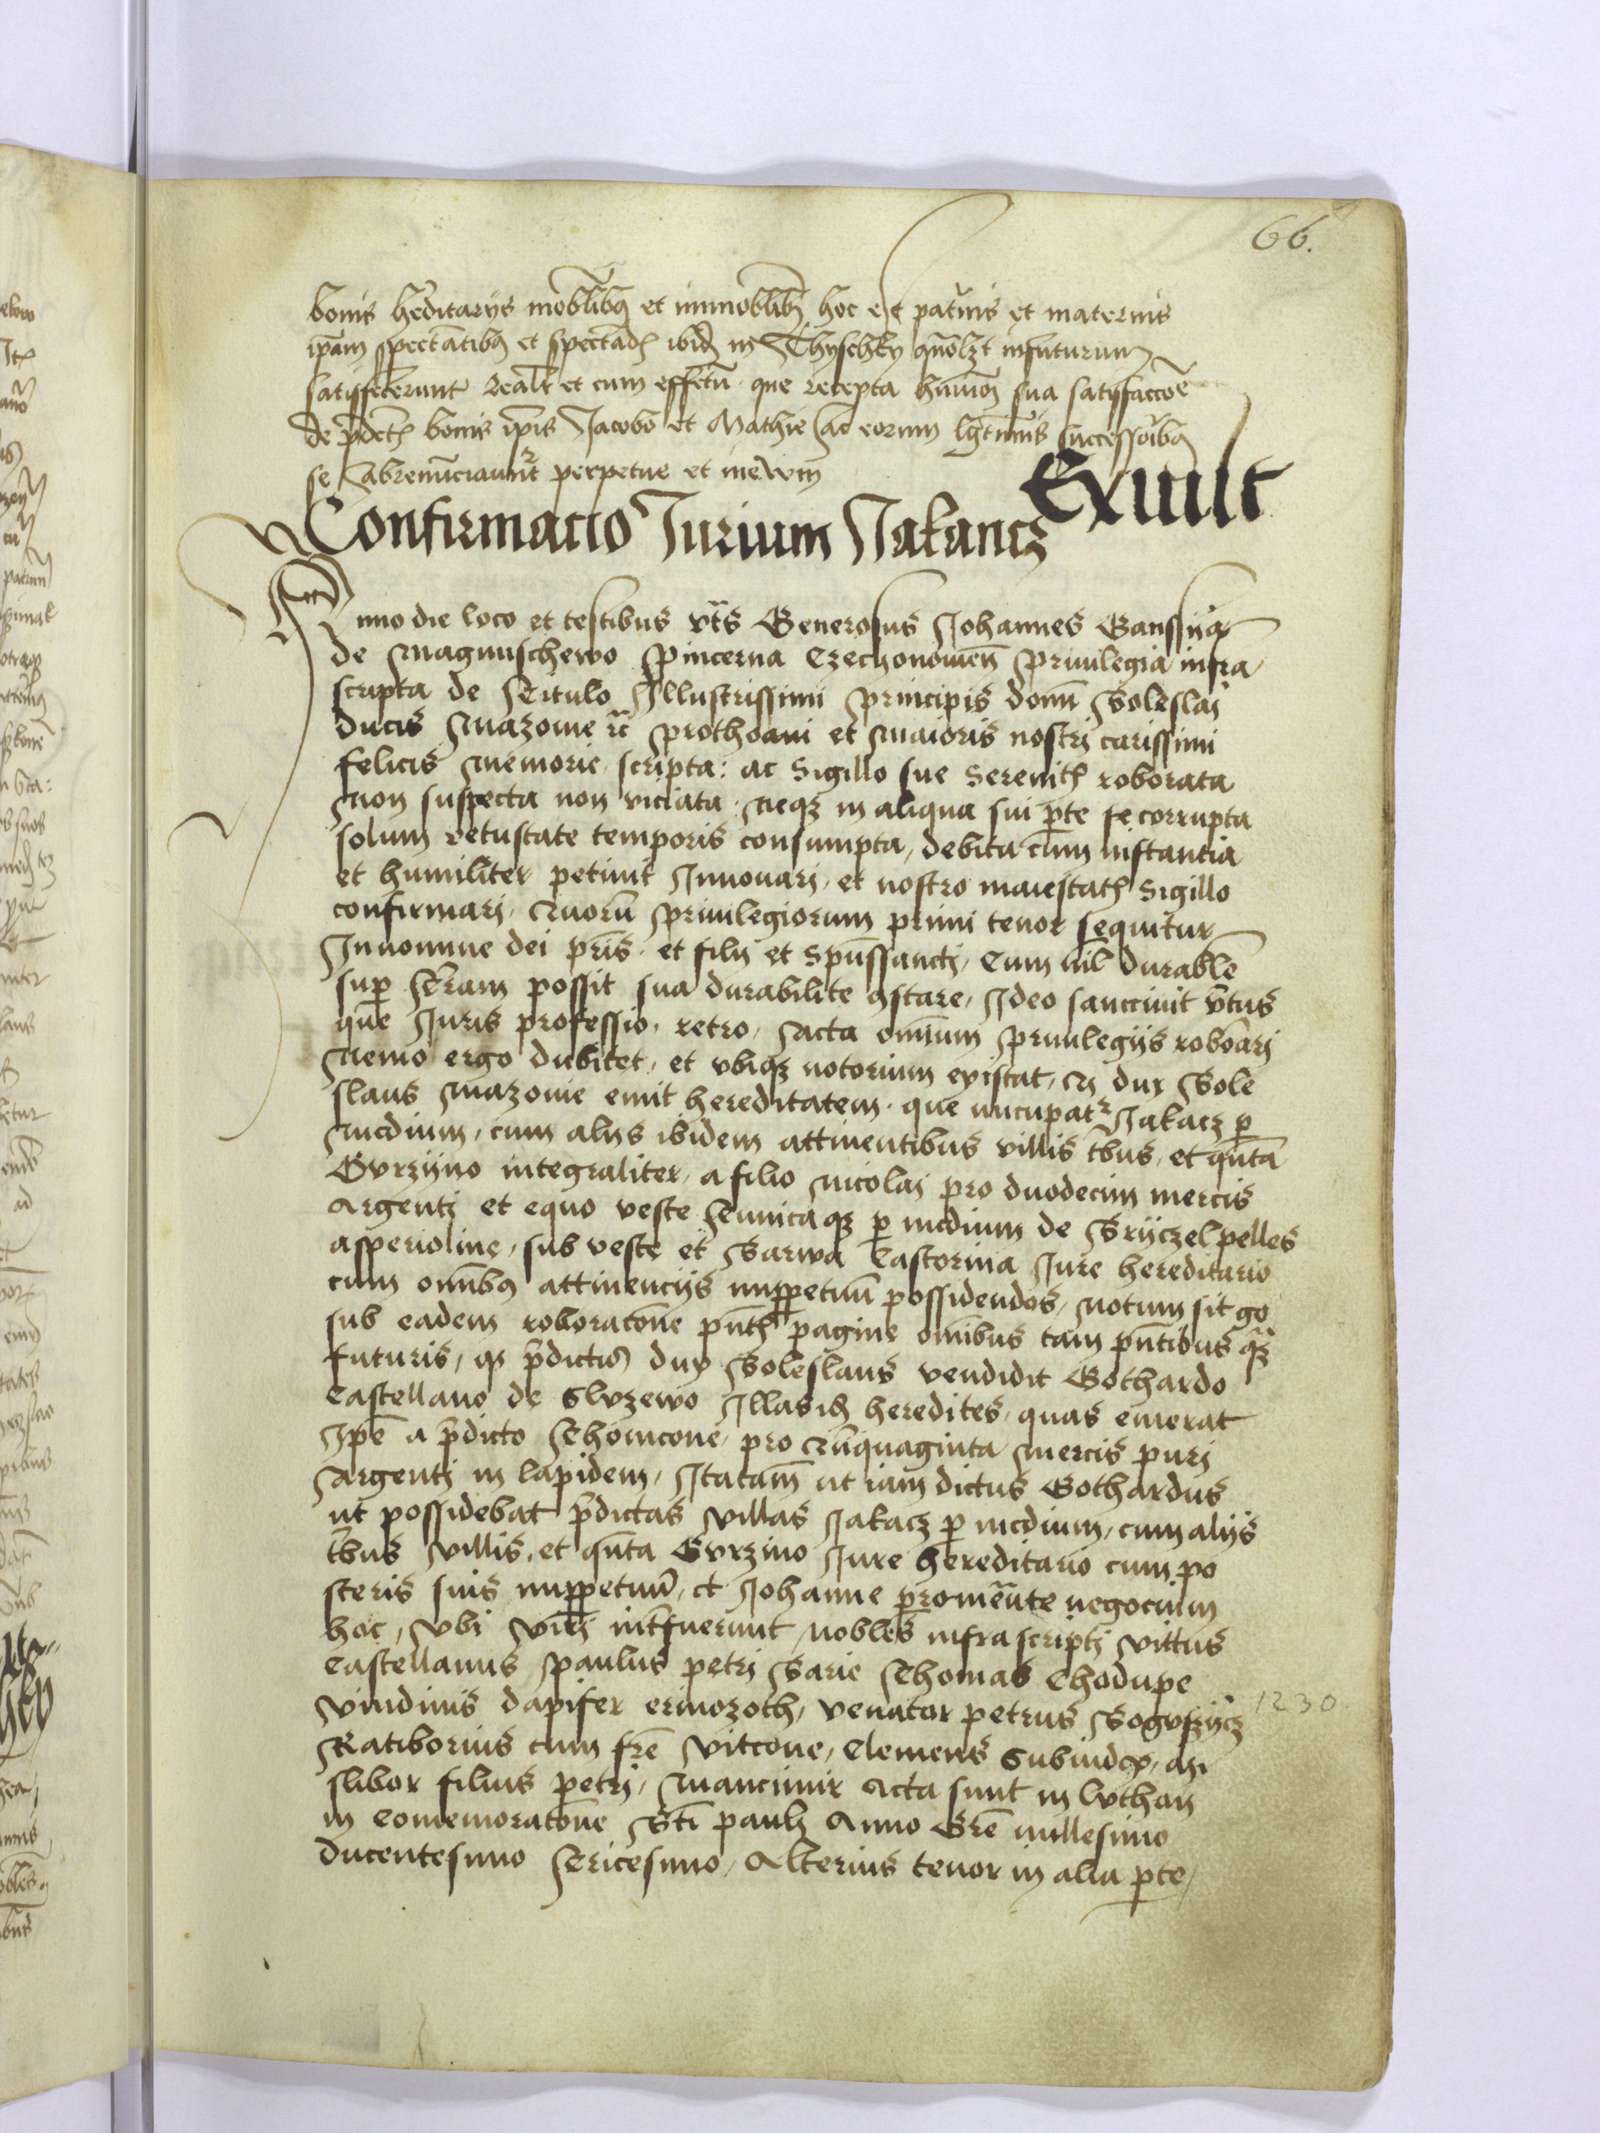 66.
bonis h'editarÿs mobĺibꝫ et immobĺibꝫ hoc est pat'nis et maternis
ip̄am spectātibꝫ et spectādꝭ ibidꝫ in Thyschky qn̄olzt infuturum
satisfecerunt realr̄ et cum effctū que recepta hm̄oi sua satisfaccōe
de p̄dctꝭ bonis ip̄is Jacobo et Mathie ac eorum lgt̄imis successoribꝫ
se abrenūciauit perpetue et ineuum
Exiuit
Confirmacio Jurium Jakancz
Anno die loco et testibus vts̄ Generosus Johannes Ganssÿa
de Magnuschewo Pincerna Czechonouien̄ Priuilegia infra
scripta de Titulo Illustrissimi Principis domī Boleslai
Ducis Mazouie rc̄ Prothoaui et Maioris nostri carissimi
felicis Memorie scripta: ac Sigillo sue Serenitꝭ roborata
Non suspecta non viciata Neqꝫ in aliqua sui ꝑte se corrupta
solum vetustate temporis consumpta, debita cum instantia
et humiliter petiuit Innouari, et nostro maiestatꝭ Sigillo
confirmari, Quorū Priuilegiorum primi tenor sequitur
In nomine dei pr̄is et filii et Spūssancti, Cum nil durable
suꝑ Terram possit sua durabilite ꝯstare, Ideo sanctiuit v̄tus
que Juris professio, retro, Acta omīum Priuilegiis roborari
Nemo ergo dubitet, et vbiqꝫ notorium existat, Qꝫ dux Bole
slaus Mazouie emit hereditatem que nūcupatꝛ Jakacz ꝑ
Medium, cum aliis ibidem attinentibus villis tb̄us, et qn̄ta
Gvrzÿno integraliter, a filio Nicolai pro duodecim mercis
Argenti et equo veste Tunicaqꝫ ꝑ medium de Brÿczel pelles
asperioline, sub veste et Barwa Castorina Jure hereditario
cum omībꝫ attinencÿs imꝑpetuū possidendos, Notum sit go
sub eadem roboracōne pn̄tꝭ pagine omībus tam pn̄tibus qꝫ
futuris, qꝫ p̄dictus dux Boleslaus vendidit Gothardo
Castellano de Slvzewo Illas idꝫ heredites, quas emerat
Ip̄e a p̄dicto Thomcone, pro Qūquaginta Mercis puri
Argenti in lapidem, Itatam̄ ut iam dictus Gothardus
ut possidebat p̄dictas villas Jakacz ꝑ medium, cum aliÿs
tb̄us villis, et qn̄ta Gvrzino Jure hereditario cum po
steris suis imꝑpetuū, et Johanne ꝓmouēte negocium
hoc, vbi viri int̄fuerunt nobles infrascripti vittus
Castellanus Paulus petri Barie Thomas Chodupe
Vindinus dapifer ermozoth, venator petrus Bogvszÿcz
Ratiborius cum fr̄e Vitcone, Clemens Subiudex, azi
slibor filius petri, Mancimir Acta sunt in lvthan
in Comemoracōne Sc̄ti pauli Anno Gr̄e millesimo
Ducentesimo Tricesimo, Alterius tenor in alia ꝑte,
1230